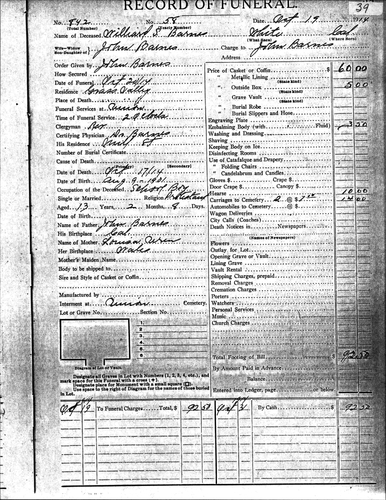 RECORD OF FUNERAL. 39
No. 842 No. 58 Date Oct 19 1914
(Total Number) (Yearly Number)
Name of Deceased William S. Barnes White Cal
(What Race) (Where Born)
Son John Barnes Charge to John Barnes
Address
Order Given by John Barnes
How Secured
Date of Funeral Oct 20/14
Residence Grass Valley
Place of Death
Funeral Services at
Time of Funeral Service 2 o'clock
Clergyman
Certifying Physician
His Residence
Number of Burial Certificate
Cause of Death
Date of Death Oct 17/14 (Secondary)
Date of Birth Aug 9 - 1901
Occupation of the Deceased School Boy
Single or Married Religion
Aged 13 Years 2 Months 8 Days.
Date of Birth
Name of Father John Barnes
His Birthplace Cal
Name of Mother
Her Birthplace
Mother's Maiden Name
Body to be shipped to
Size and Style of Casket or Coffin
Manufactured by
Interment at Cemetery.
Lot or Grave No. Section No.
1
2
3
4
5
6
Diagram of Lot or Vault.
Designate all Graves in Lot with Numbers (1, 2, 3, 4, etc.), and
mark space for this Funeral with a cross
Designate place for Monument with a small square
Use space to the right of Diagram for names of those buried
in Lot.
Price of Casket or Coffin $ 60.00
" Metallic Lining
(State kind)
" Outside Box 5.00
(State kind)
" Grave Vault
(State kind)
" Burial Robe
" Burial Slippers and Hose
Engraving Plate
Embalming Body (with Fluid) 3.50
Washing and Dressing
Shaving
Keeping Body on Ice
Disinfecting Rooms
Use of Catafalque and Drapery
" Folding Chairs
" Candelabrum and Candles
Gloves $ Crape $
Door Crape $ Canopy $
Hearse 10.00
Carriages to Cemetery 2 @ $ 7.00 14.00
Automobiles to Cemetery @ $
Wagon Deliveries
City Calls (Coaches)
Death Notices in Newspapers
(Names of Newspapers)
Flowers
Outlay for Lot
Opening Grave or Vault
Lining Grave
Vault Rental
Shipping Charges, prepaid
Removal Charges
Cremation Charges
Porters
Watchers
Personal Services
Music
Church Charges
Total Footing of Bill $ 92.50
By Amount Paid in Advance
Balance
Entered into Ledger, page or below.
Oct 19 To Funeral Charges, Total, $ 92.50 Oct By Cash $